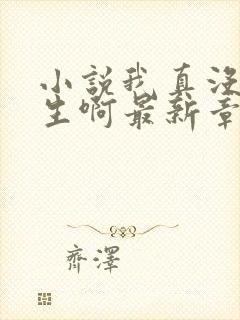 小説我真沒
生啊最新章
齊澤